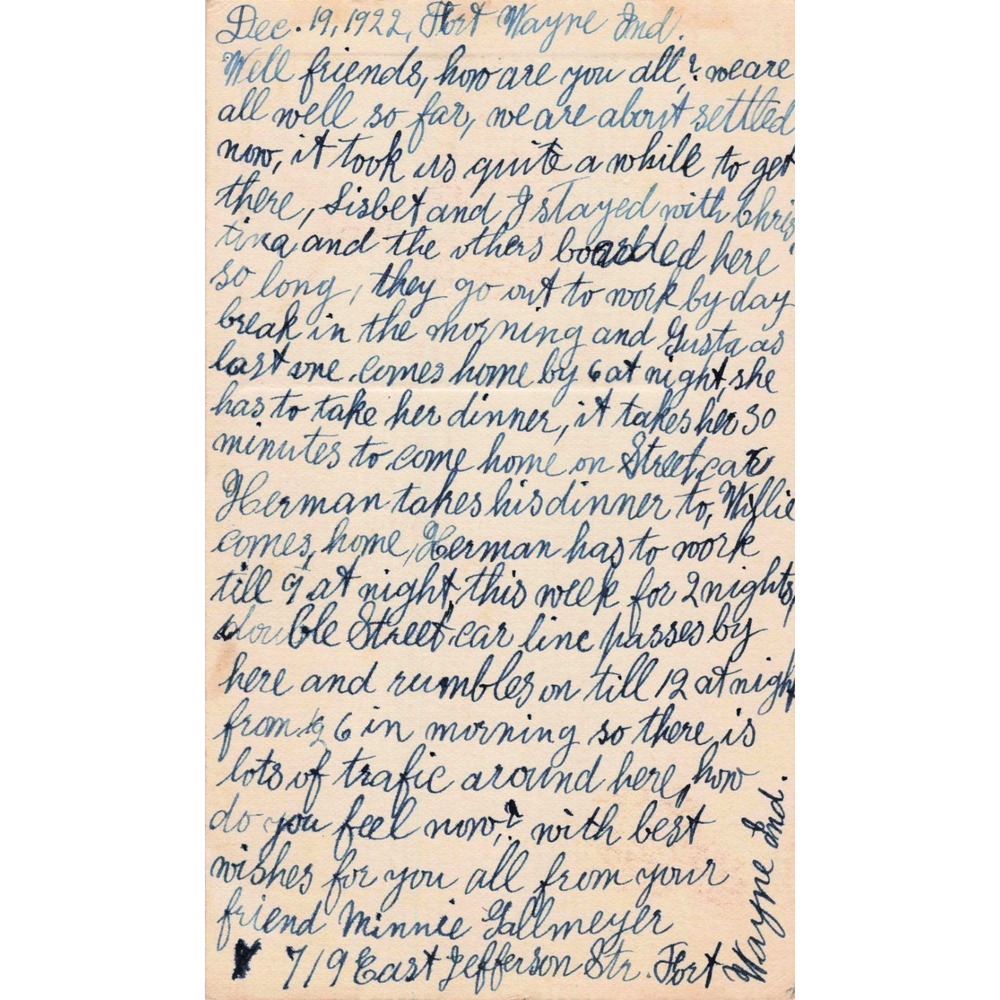 Dec. 19, 1922, Fort Wayne Ind.
Well friends, how are you all,? we are
all well so far, we are about settled
now, it took us quite a while to get
there, Lisbet and I stayed with Chris
tina and the others boarded here
so long, they go out to work by day
break in the morning and Gusta as
last one comes home by 6 at night, she
has to take her dinner, it takes her 30
minutes to come home on Street car
Herman takes his dinner to, Willie
comes home, Herman has to work
till 9 at night, this week for 2 nights,
double Street car line passes by
here and rumbles on till 12 at night
from ½ 6 in morning so there is
lots of trafic around here, how
do you feel now,? with best
wishes for you all from your
friend Minnie Gallmeyer
719 East Jefferson Str. Fort
Wayne Ind.